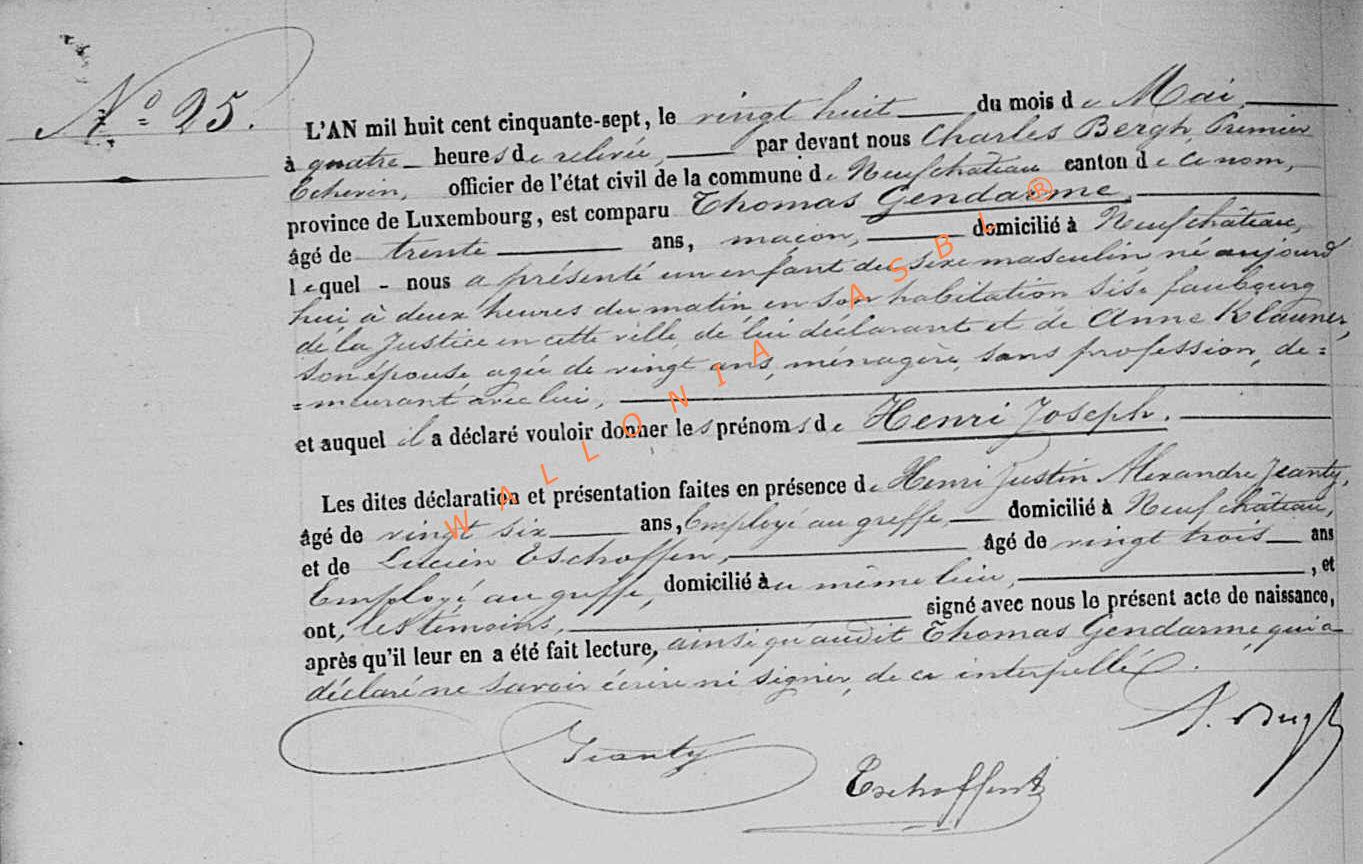 N° 25.
L'AN mil huit cent cinquante-sept, le vingt huit du mois de Mai,
à quatre heures de relevée, par devant nous Charles Bergh, Premier
Echevin, officier de l'état civil de la commune de Neufchâteau canton de ce nom,
province de Luxembourg, est comparu Thomas Gendarme,
âgé de trente ans, maçon, domicilié à Neufchâteau,
lequel - nous a présenté un enfant du sexe masculin né aujourd
hui à deux heures du matin en son habitation sise faubourg
de la Justice en cette ville, de lui déclarant et de Anne Klauner,
son épouse agée de vingt ans, ménagère, sans profession, de=
=meurant avec lui,
et auquel il a déclaré vouloir donner les prénoms de Henri Joseph.
Les dites déclaration et présentation faites en présence de Henri Justin Alexandre Jeanty,
âgé de vingt six ans, Employé au greffe, domicilié à Neufchâteau,
et de Lucien Eschoffen, âgé de vingt trois ans
Employé au greffe, domicilié au même lieu, , et
ont, les témoins, signé avec nous le présent acte de naissance,
après qu'il leur en a été fait lecture, ainsi qu'audit Thomas Gendarme, qui a
déclaré ne savoir écrire ni signer, de ce interpellé.
Jeanty
Eschoffen
WALLONIA ASBL ®